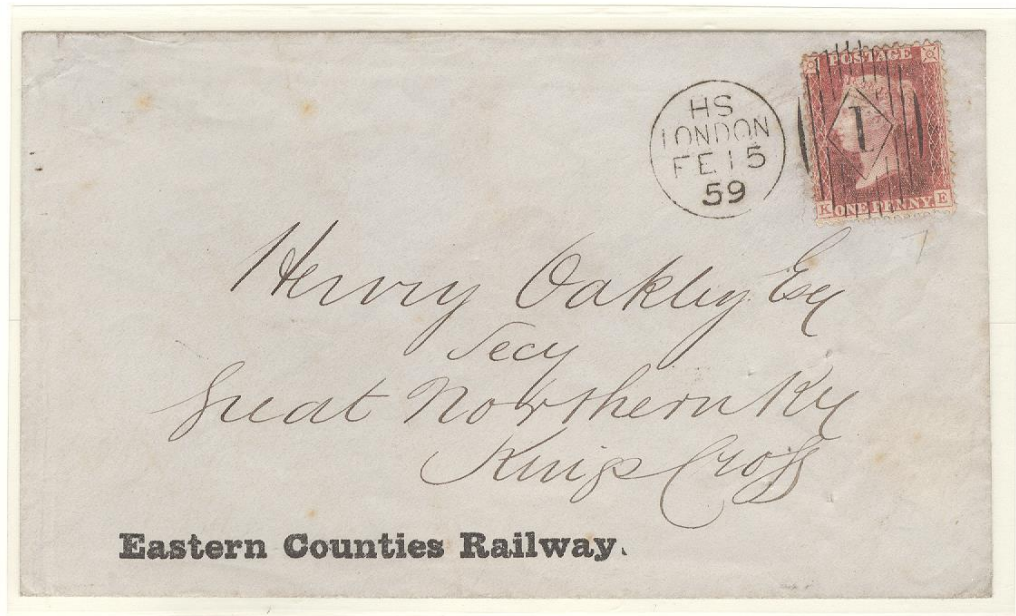 POSTAGE
HS
LONDON
FE 15
59
1
K ONE PENNY E
Henry Oakley Esq
Secy
Great Northern Ry
Kings Cross
Eastern Counties Railway.